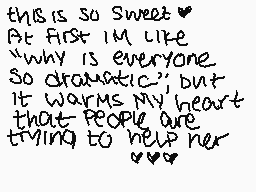 this is so sweet ♥
At first IM LIKE
"why is everyone
so dramatic", but
it warms my heart
that people are
trying to help her
♥♥♥